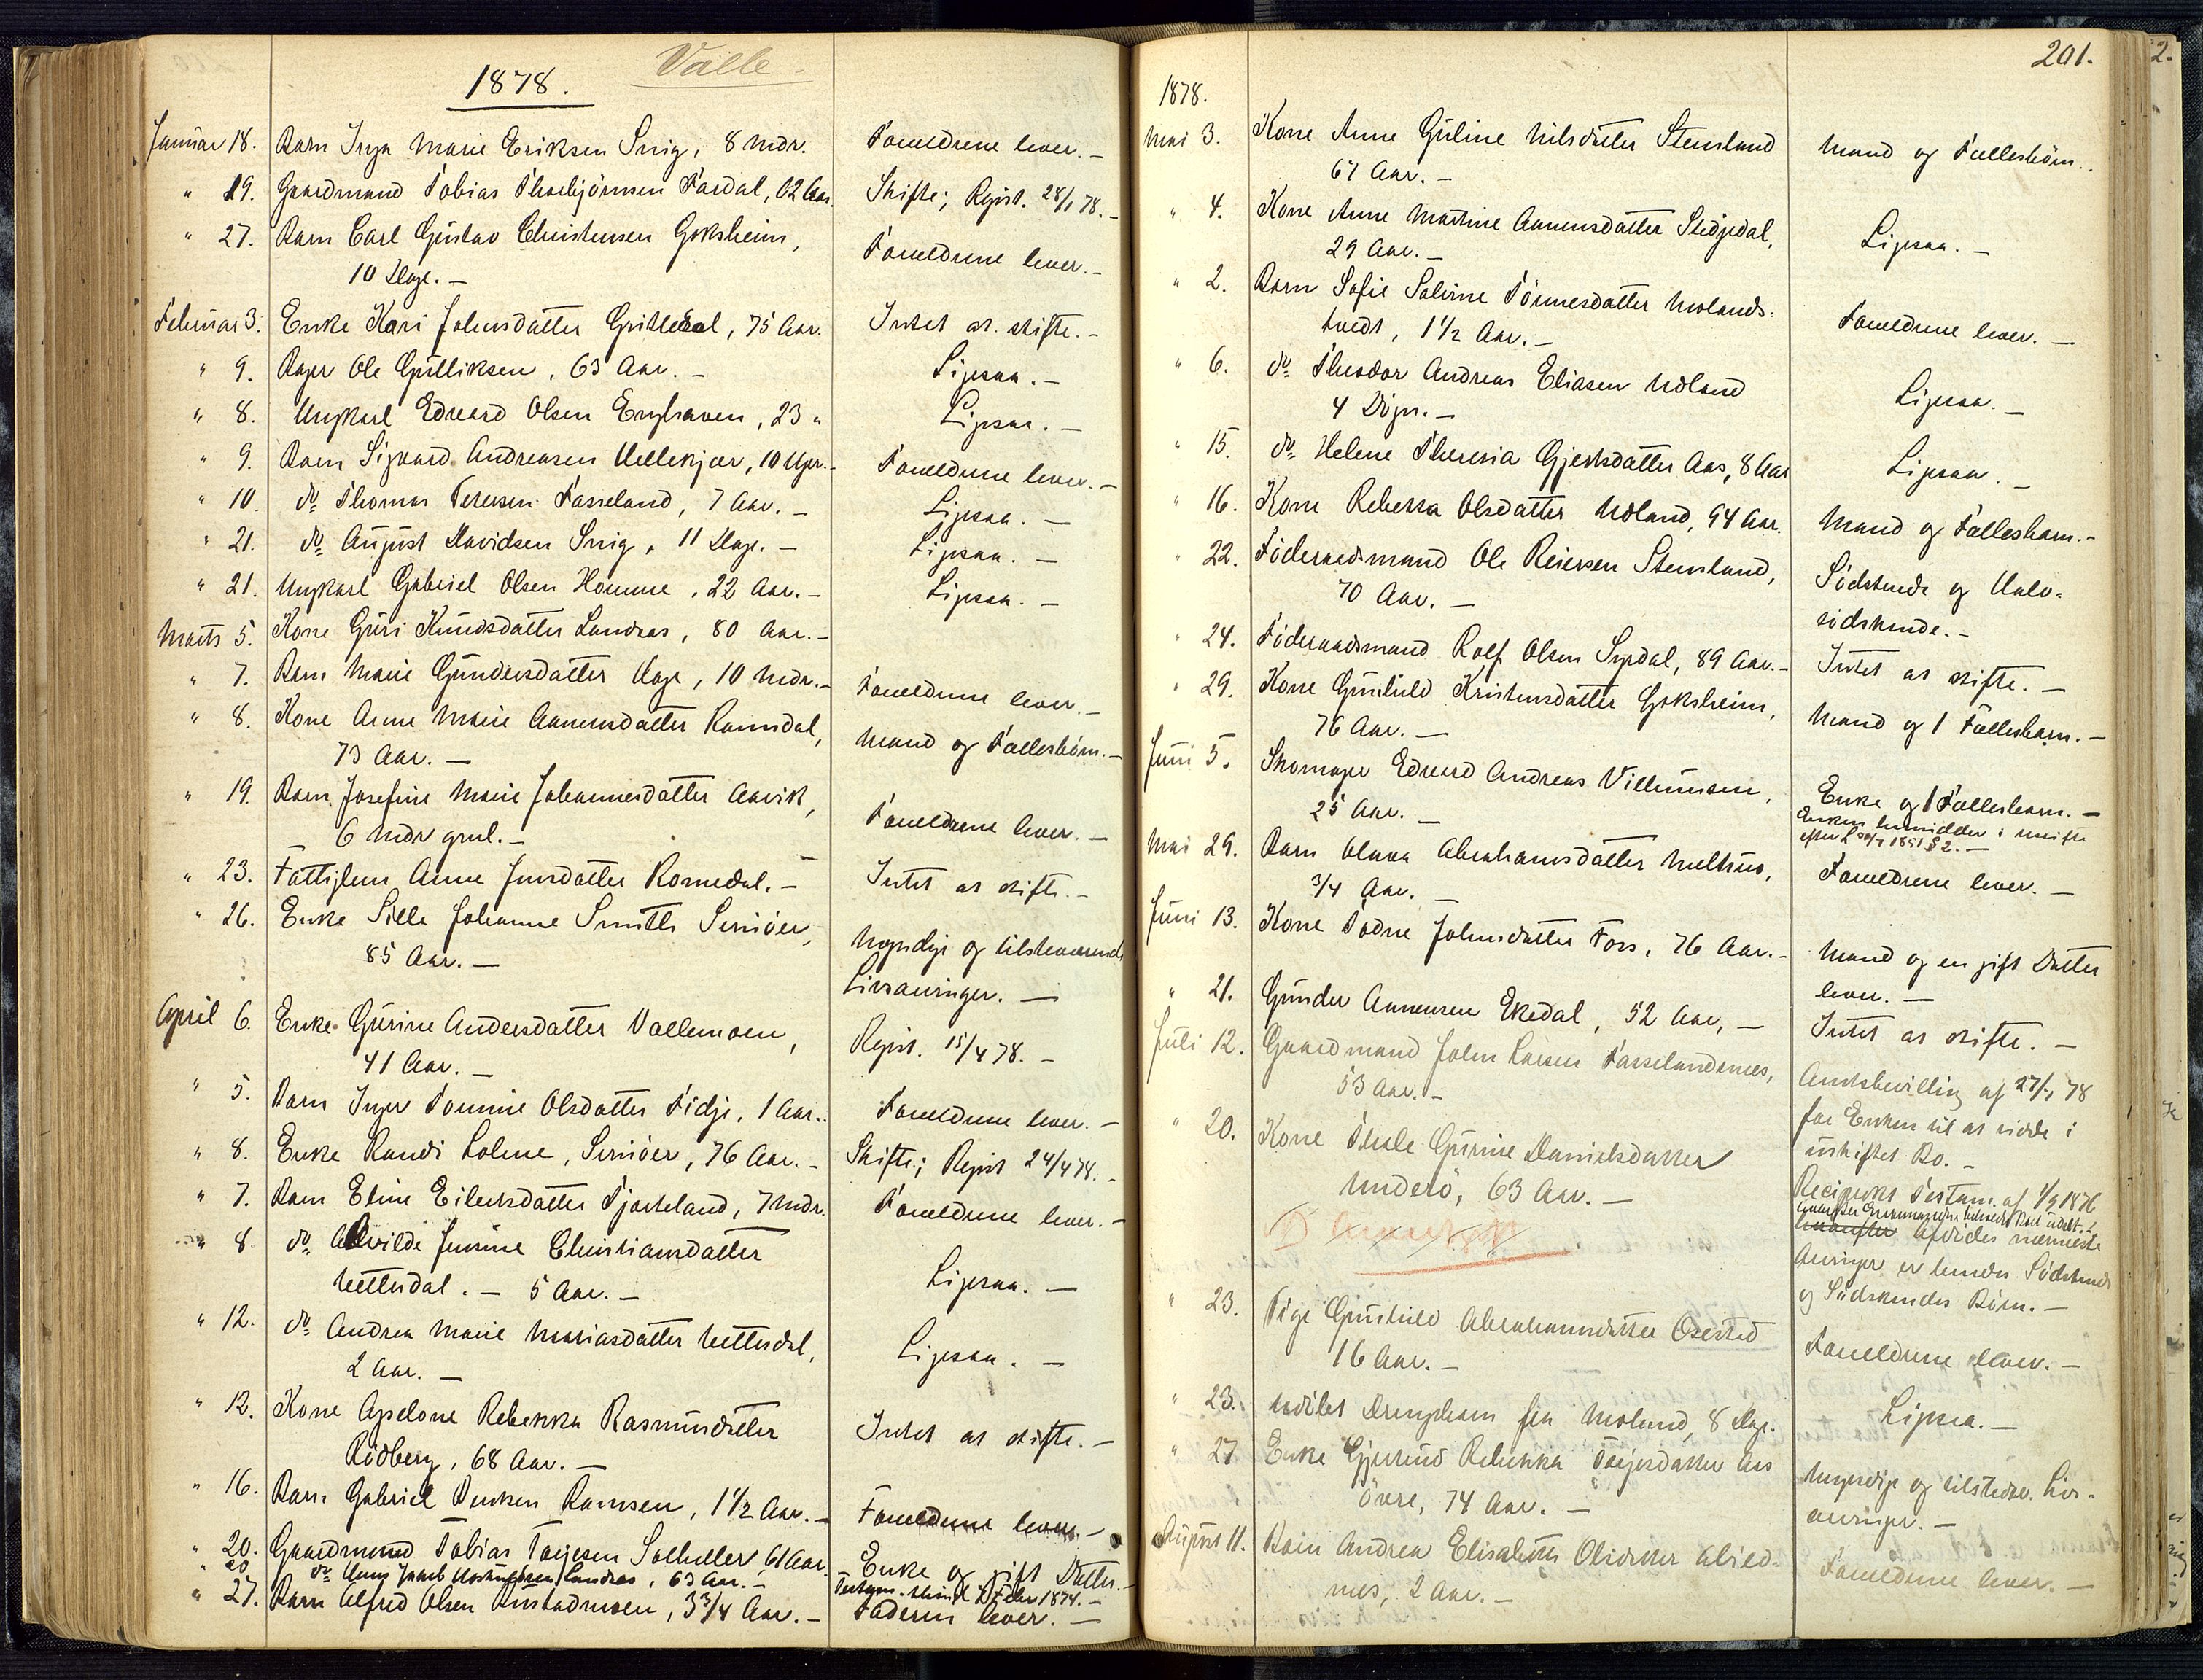 Valle
1878.
Januar 18. Barn Inga Marie Eriksen Snig, 8 Mdr. Forældrene lever. –
" 19. Gaardmand Tobias Thorbjörnsen Fardal, 62 Aar. Skifte; Regist. 28/1 78. –
" 27. Barn Carl Gustav Christensen Goksheim, Forældrene lever. –
10 Dage. –
Februar 3. Enke Kari Johnsdatter Grisledal, 75 Aar. Intet at skifte. –
" 9. Bager Ole Gulliksen, 63 Aar. – Ligesaa. –
" 8. Ungkarl Edvard Olsen Enghaven, 23 " Ligesaa. –
" 9. Barn Sigvard Andreasen Hellekjær, 10 Uger. – Forældrene lever. –
" 10. do Thomas Petersen Fasseland, 7 Aar. – Ligesaa. –
" 21. do August Davidsen Snig, 11 Dage. – Ligesaa. –
" 21. Ungkarl Gabriel Olsen Homme, 22 Aar. – Ligesaa. –
Marts 5. Kone Guri Knudsdatter Landaas, 80 Aar. –
" 7. Barn Marie Gundersdatter Hage, 10 Mdr. – Forældrene lever. –
" 8. Kone Anne Marie Aanensdatter Ramsdal, Mand og Fællesbörn. –
73 Aar. –
" 19. Barn Josefine Marie Johannesdatter Aavik, Forældrene lever. –
6 Mdr gml. –
" 23. Fattiglem Anne Jensdatter Romedal. – Intet at skifte. –
" 26. Enke Sille Johanne Smith Svinöer, Myndige og tilstedeværende
85 Aar. – Livsarvinger. –
April 6. Enke Gurine Andersdatter Vallemoen, Regist. 15/4 78. –
41 Aar. –
" 5. Barn Inger Tomine Olsdatter Fidje, 1 Aar. Forældrene lever. –
" 8. Enke Randi Salene, Svinöer, 76 Aar. – Skifte; Regist 24/4 78. –
" 7. Barn Eline Eilertsdatter Tjorteland, 7 Mdr. Forældrene lever. –
" 8. do Alvilde Junine Christiansdatter
Vettesdal. – 5 Aar. – Ligesaa. –
" 12. do Andrea Marie Mathiasdatter Vettesdal, Ligesaa. –
2 Aar. –
" 12. Kone Apelone Rebekka Rasmusdatter
Rödberg, 68 Aar. – Intet at skifte. –
" 16. Barn Gabriel Bentsen Ramsen, 1 1/2 Aar. – Forældrene lever. –
" 20. Gaardmand Tobias Taijesen Solheller, 61 Aar. Enke og gift Datter. –
" 20 do Hans Jacob Landaas, 63 Aar. – Testam. 4 Febr 1874. –
" 27. Barn Alfred Olsen Bustadmoen, 3 3/4 Aar. – Faderen lever. –
201.
1878.
Mai 3. Kone Anne Guline Nilsdatter Stensland Mand og Fællesbörn.
61 Aar. –
" 4. Kone Anne Martine Aanensdatter Stedjedal, Ligesaa. –
29 Aar. –
" 2. Barn Sofie Saline Tönnesdatter Molands-
tvedt, 1 1/2 Aar. – Forældrene lever. –
" 6. do Theodor Andreas Eliasen Udland Ligesaa. –
4 Dögn. –
" 15. do Helene Theresia Gjertsdatter Aas, 8 Aar Ligesaa. –
" 16. Kone Rebekka Olsdatter Udland, 94 Aar. Mand og Fællesbarn. –
" 22. Föderaadsmand Ole Reiersen Stensland, Södskende og Halv-
70 Aar. – södskende. –
" 24. Föderaadsmand Rolf Olsen Syrdal, 89 Aar. – Intet at skifte. –
" 29. Kone Gunhild Kristensdatter Goksheim, Mand og 1 Fællesbarn. –
76 Aar. –
Juni 5. Skomager Edvard Andreas Villumsen, Enke og 1 Fællesbarn. –
25 Aar. – Enken hensidder i uskifte
efter L 1851 § 2. –
Mai 29. Barn Olava Abrahamsdatter Melhus, Forældrene lever. –
3/4 Aar. –
Juni 13. Kone Todne Johnsdatter Foss, 76 Aar. – Mand og en gift Datter
lever. –
" 21. Gunder Aanensen Ekedal, 52 Aar, – Intet at skifte. –
Juli 12. Gaardmand John Larsen Fasselandsnes, Amtsbevilling af 27/7 78
53 Aar. – for Enken til at sidde i
uskiftet Bo. –
" 20. Kone Thale Gurine Danielsdatter
Underö, 63 Aar. – Reciprokt Testam. af 1/9 1876
Afdödes nærmeste
Arvinger er hendes Södskende
og Södskendes Börn. –
" 23. Pige Gunhild Abrahamsdatter Osestad
16 Aar. – Forældrene lever. –
" 23. Udöbt Drengebarn fra Moland, 8 Dage. Ligesaa. –
" 27 Enke Gjertrud Rebekka Taijesdatter Aas Myndige og tilstedev. Livs-
övre, 74 Aar. – arvinger. –
August 11. Barn Andrea Elisabeth Olsdatter Abied-
nes, 2 Aar. – Forældrene lever. –